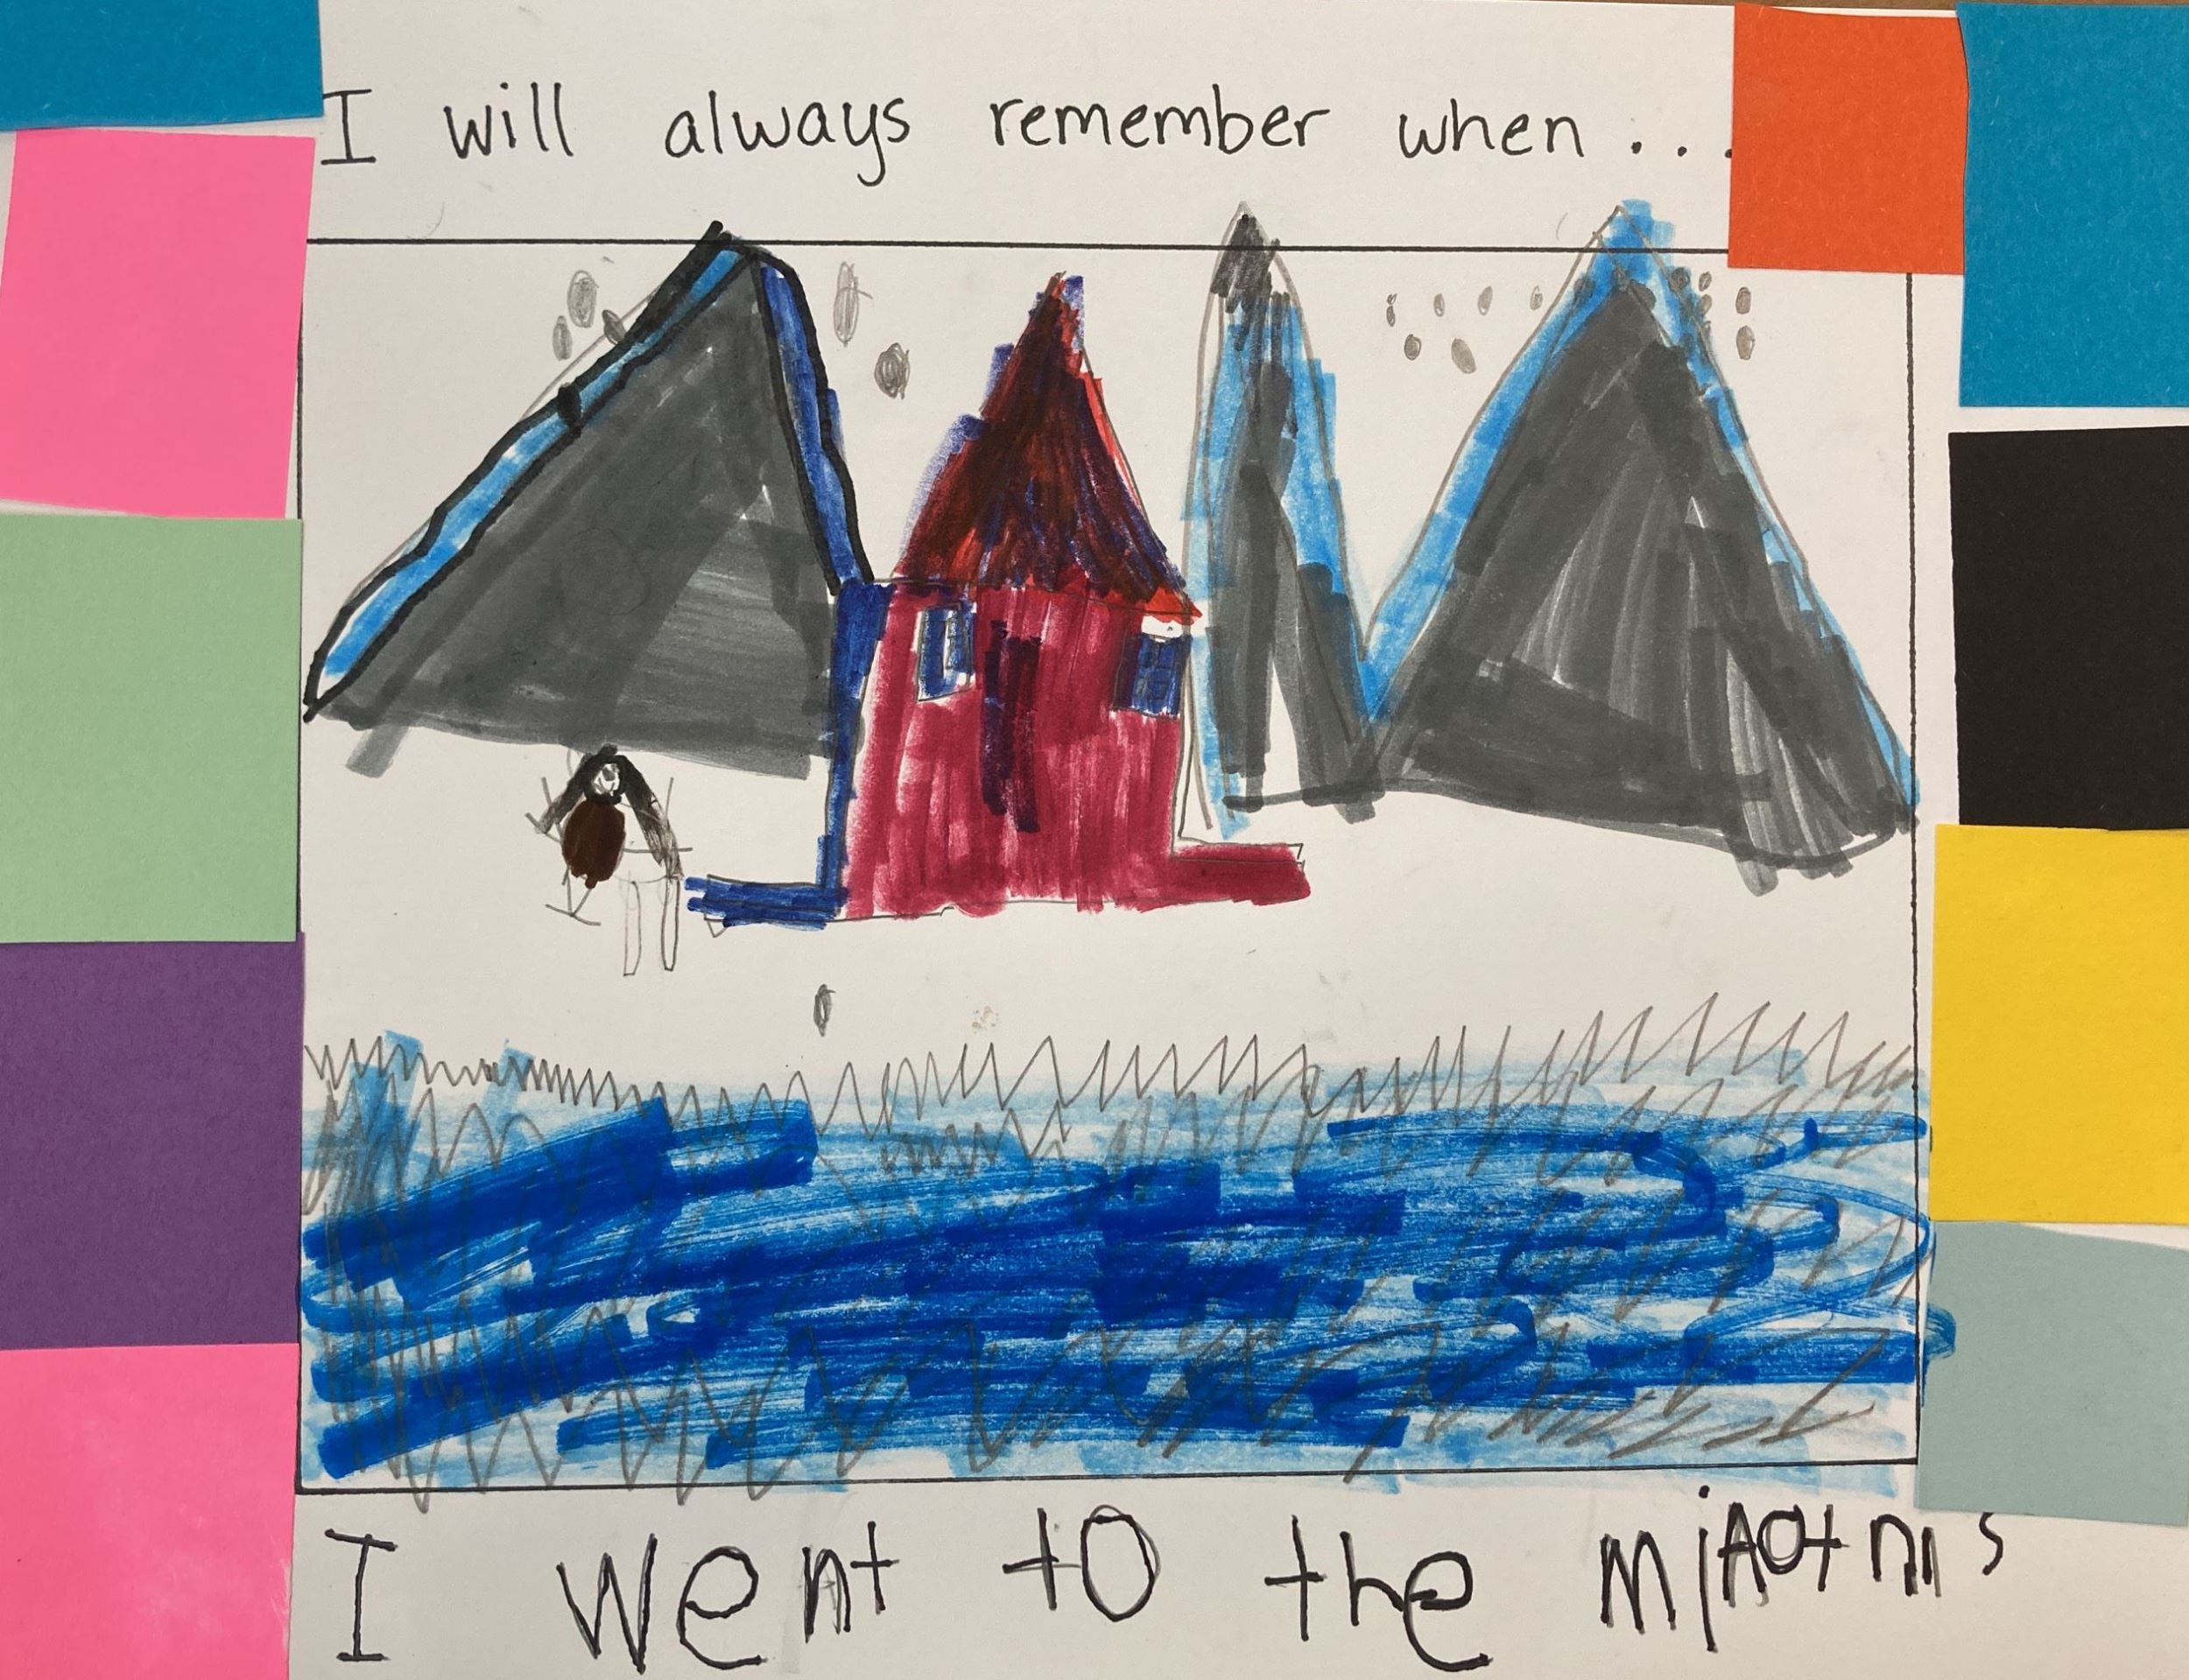 I will always remember when...
I went to the miAotnis